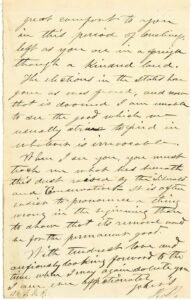 great comfort to you
in this period of
left as you are in a foreign
though a kindred land.
The elections in the States has
gone as was feared, and now
that is doomed I am unable
to see the good which we
usually to find in
whatever is irrevocable.
When I see you, you must
teach me what lies beneath
this dark
and Conservatism. It is often
easier to pronounce a thing
wrong in the beginning than
to shown that its removal would
be for the permanent good.
With tenderest love and
anxiously looking forward to the
time when I may again greet you
I am ever, affectionately